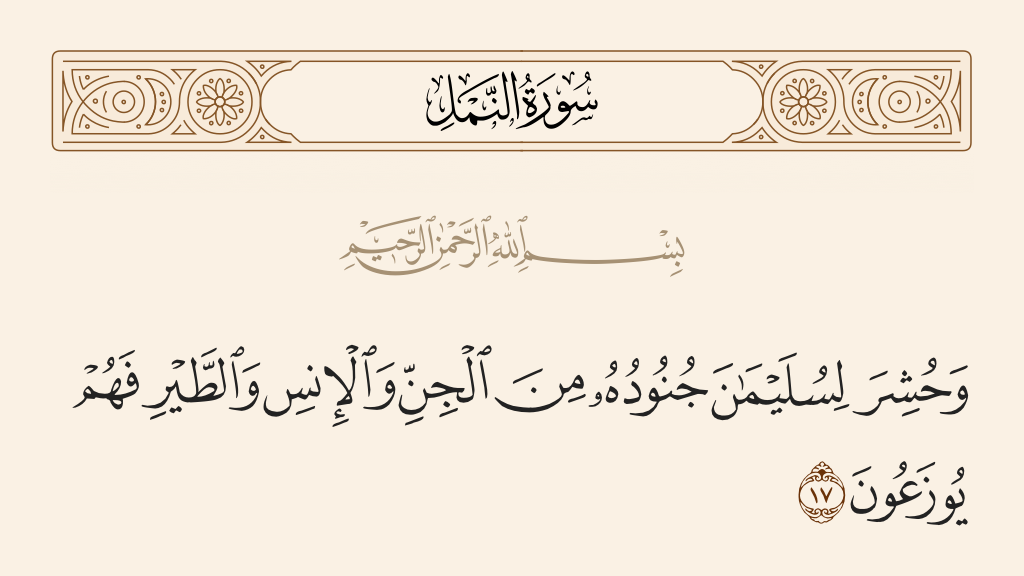 سُورَةُ النَّمْلِ
بِسْمِ ٱللَّهِ ٱلرَّحْمَٰنِ ٱلرَّحِيمِ
وَحُشِرَ لِسُلَيْمَٰنَ جُنُودُهُۥ مِنَ ٱلْجِنِّ وَٱلْإِنسِ وَٱلطَّيْرِ فَهُمْ
يُوزَعُونَ ١٧